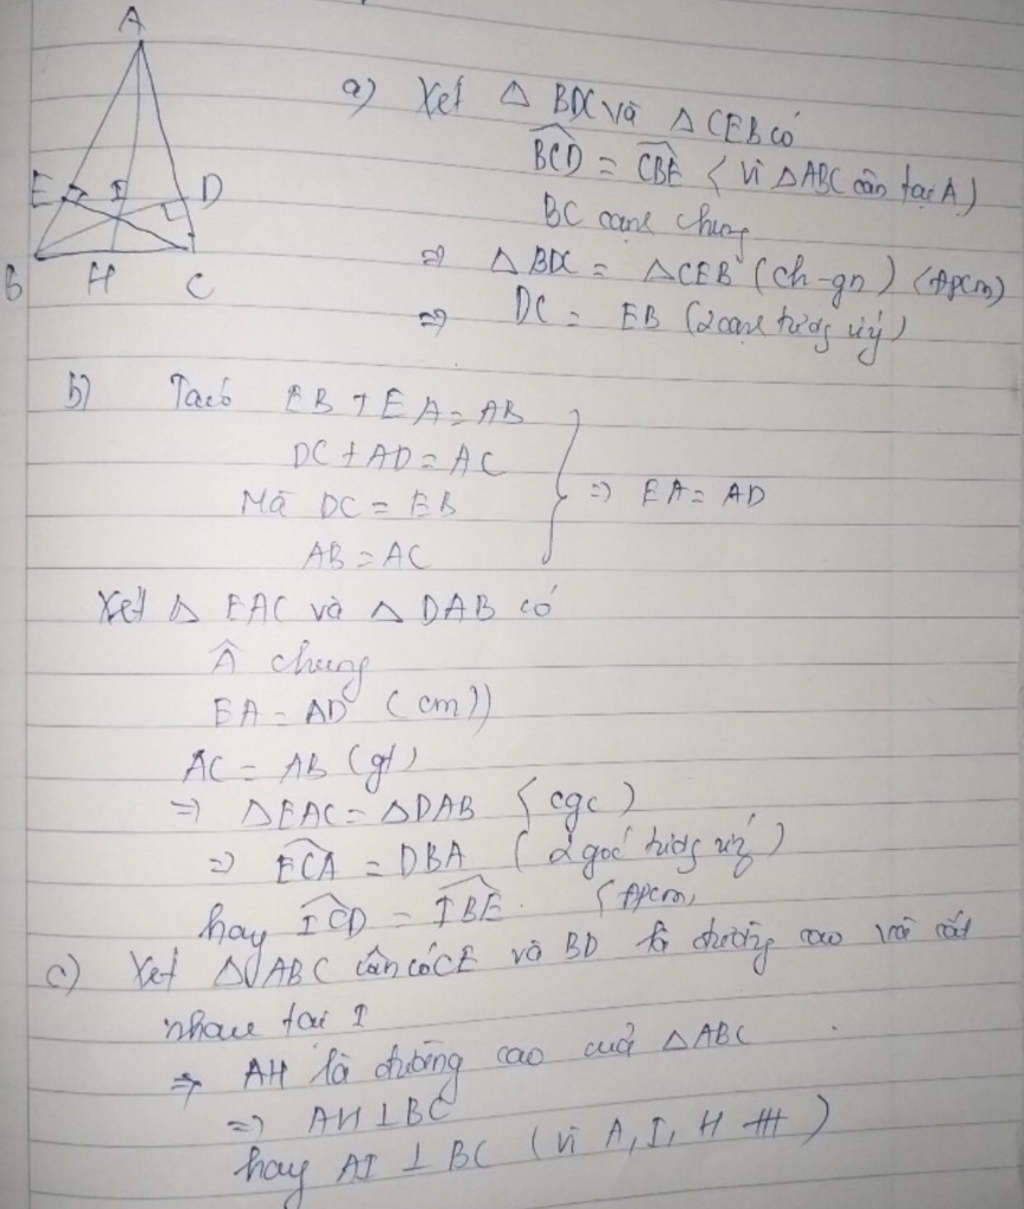 A
E I D
B H C
a) Xét △ BDC và △ CEB có
BCD = CBE (vì △ABC cân tại A)
BC cạnh chung
⇒ △ BDC = △CEB (ch-gn) (đpcm)
⇒ DC = EB (2 cạnh tương ứng)
b) Ta có EB + EA = AB
DC + AD = AC
Mà DC = EB
⇒ EA = AD
AB = AC
Xét △ EAC và △ DAB có
Â chung
EA = AD (cm))
AC = AB (gt)
⇒ △EAC = △DAB (cgc)
⇒ ECA = DBA (2 góc tương ứng)
hay ICD = IBE. (đpcm)
c) Xét △ABC cân có CE và BD là đường cao và cắt
nhau tại I
⇒ AH là đường cao của △ABC
⇒ AH ⊥ BC
hay AI ⊥ BC (vì A, I, H tH)